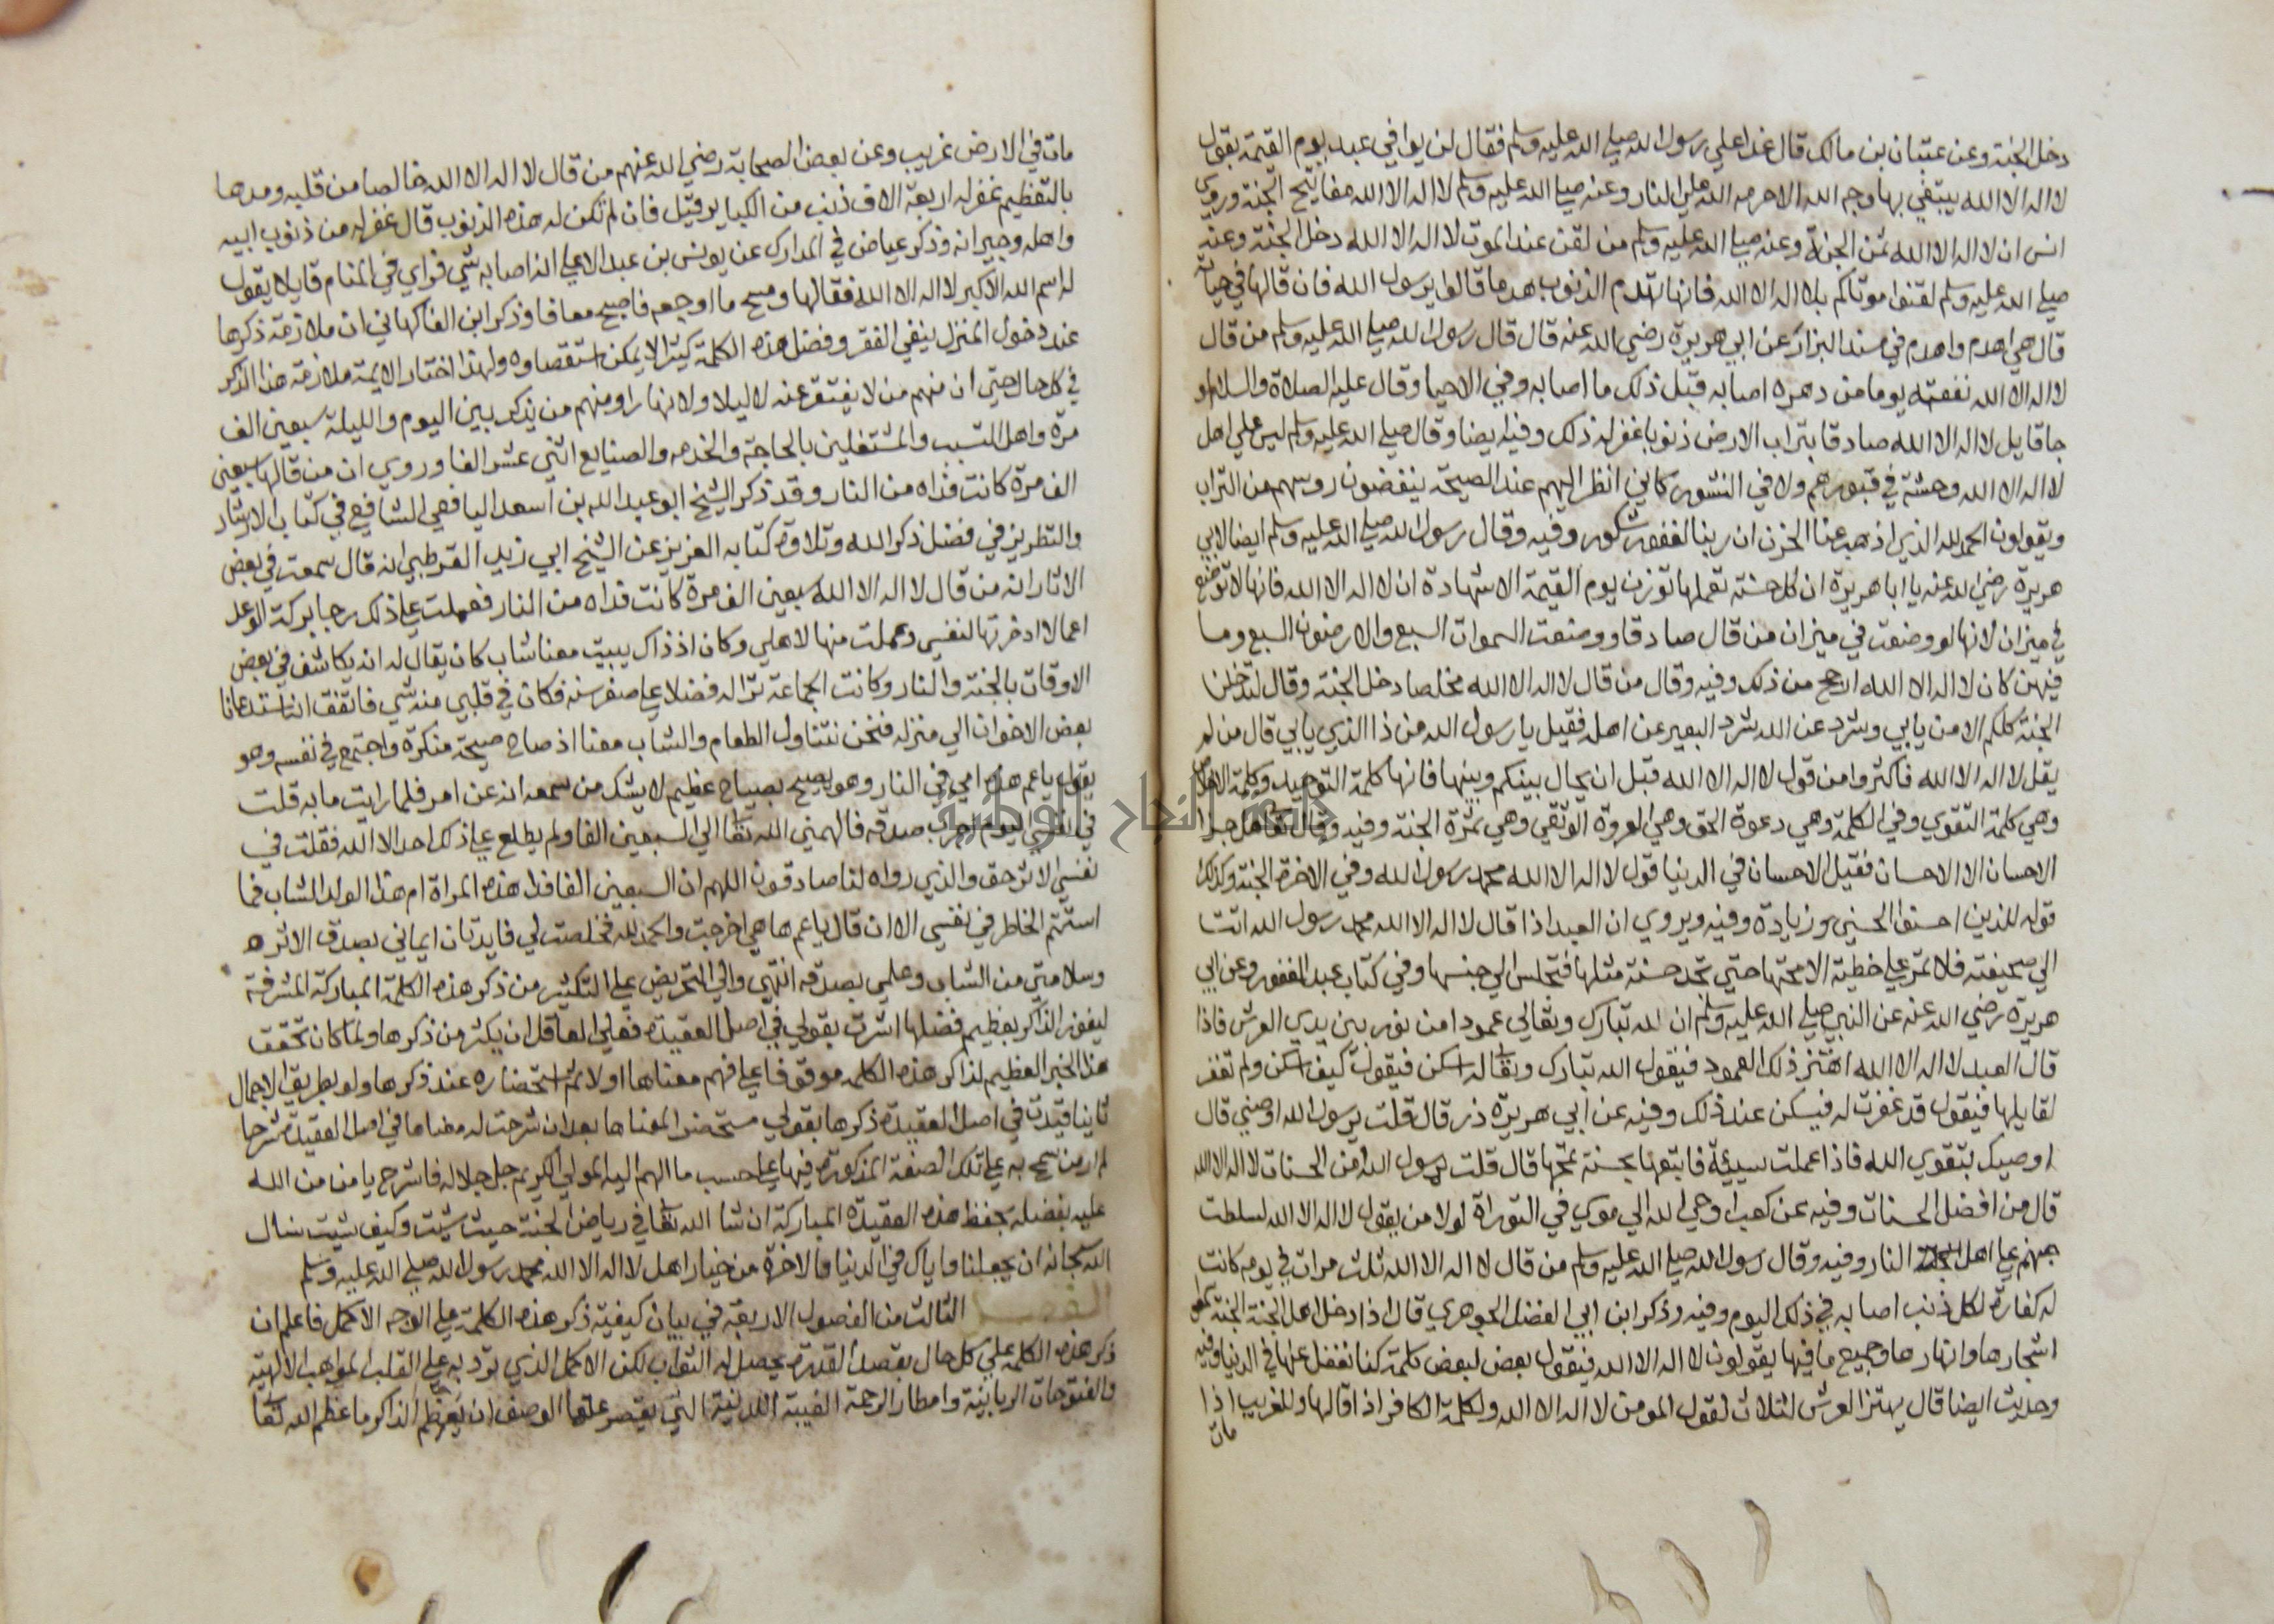 دخل الجنة وعن عتبان بن مالك قال غدا علي رسول الله صلي الله عليه وسلم فقال لن يوافي عبد يوم القيمة يقول
لا اله الا الله يبتغي بها وجه الله الا حرمه الله علي النار وعنه صلي الله عليه وسلم لا اله الا الله مفاتيح الجنة وروي
انس ان لا اله الا الله ثمن الجنة وعنه صلي الله عليه وسلم من لقن عند الموت لا اله الا الله دخل الجنة وعنه
صلي الله عليه وسلم لقنوا موتاكم بلا اله الا الله فانها تهدم الذنوب هدما قالوا يرسول الله فان قالها في حياته
قال هي اهدم واهدم في مسند البزار عن ابي هريرة رضي الله عنه قال قال رسول الله صلي الله عليه وسلم من قال
لا اله الا الله نفعته يوما من دهره اصابه قبل ذلك ما اصابه وفي الاحيا وقال عليه الصلاة والسلام لو
جا قايل لا اله الا الله صادقا بتراب الارض ذنوبا غفر له ذلك وفيه ايضا وقال صلي الله عليه وسلم ليس علي اهل
لا اله الا الله وحشة في قبورهم ولا في النشور كاني انظر اليهم عند الصيحة ينفضون روسهم من التراب
ويقولون الحمد لله الذي اذهب عنا الحزن ان ربنا لغفور شكور وفيه وقال رسول الله صلي الله عليه وسلم ايضا لابي
هريرة رضي الله عنه يا ابا هريرة ان كل حسنة تعملها توزن يوم القيمة الا شهادة ان لا اله الا الله فانها لا توضع
في ميزان لانها لو وضعت في ميزان من قال صادقا ووضعت السموات السبع والارضون السبع وما
فيهن كان لا اله الا الله ارجح من ذلك وفيه وقال من قال لا اله الا الله مخلصا دخل الجنة وقال لتدخلن
الجنة كلكم الا من يابي وشرد عن الله شرد البعير عن اهله فقيل يا رسول الله من ذا الذي يابي قال من لم
يقل لا اله الا الله فاكثروا من قول لا اله الا الله قبل ان يحال بينكم وبينها فانها كلمة التوحيد وكلمة الاخلاص
وهي كلمة التقوي وفي الكلمة وهي دعوة الحق وهي العروة الوثقي وهي ثمرة الجنة وفيه وقال تعا هل جزا
الاحسان الا الاحسان فقيل الاحسان في الدنيا قول لا اله الا الله محمد رسول الله وفي الاخرة الجنة وكذلك
قوله للذين احسنوا الحسني وزيادة وفيه ويروي ان العبد اذا قال لا اله الا الله محمد رسول الله اتت
الي صحيفته فلا تمر علي خطية الا محتها حتي تجد حسنة مثلها فتجلس الي جنبها وفي كتاب عبد الغفور وعن ابي
هريرة رضي الله عنه عن النبي صلي الله عليه وسلم ان لله تبارك وتعالي عمودا من نور بين يدي العرش فاذا
قال العبد لا اله الا الله اهتز ذلك العمود فيقول الله تبارك وتعا له اسكن فيقول كيف اسكن ولم تغفر
لقايلها فيقول قد غفرت له فيسكن عند ذلك وفيه عن ابي هريرة ذر قال قلت يرسول الله اوصني قال
اوصيك بتقوي الله فاذا عملت سيئة فاتبعها بحسنة تمحها قال قلت يرسول الله من الحسنات لا اله الا الله
قال من افضل الحسنات وفيه عن كعب اوحي الله الي موسي في التوراة لولا من يقول لا اله الا الله لسلطت
جهنم علي اهل النار وفيه وقال رسول الله صلي الله عليه وسلم من قال لا اله الا الله ثلث مرات في يومه كانت
له كفارة لكل ذنب اصابه في ذلك اليوم وفيه وذكر ابن ابي الفضل الجوهري قال اذا دخل اهل الجنة الجنة
اشجارها وانهارها وجميع ما فيها يقولون لا اله الا الله فيقول بعض لبعض كلمة كنا نغفل عنها في الدنيا وفيه
وحديث ايضا قال يهتز العرش لثلاث لقول المومن لا اله الا الله ولكلمة الكافر اذا قالها وللغريب اذا
مات
مات في الارض غريب وعن بعض الصحابة رضي الله عنهم من قال لا اله الا الله خالصا من قلبه ومدها
بالتعظيم غفر له اربعة الاف ذنب من الكباير قيل فان لم تكن له هذه الذنوب قال غفر له من ذنوب ابيه
واهله وجيرانه وذكر عياض في المدارك عن يونس بن عبد الاعلي انه اصابه شي فراي في المنام قايلا يقول
له اسم الله الاكبر لا اله الا الله فقالها ومسح ما اوجعه فاصبح معافا وذكر ابن الفاكهاني ان ملازمة ذكرها
عند دخول المنزل ينفي الفقر وفضل هذه الكلمة كثير لا يمكن استقصاوه ولهذا اختار الايمة ملازمة هذا الذكر
في كل حال حتي ان منهم من لا يفتر عنه لا ليلا ولا نهارا ومنهم من يذكر بين اليوم والليلة سبعين الف
مرة واهل التسبب والمشتغلين بالحاجة والخدمه والصنايع اثني عشر الفا وروي ان من قالها سبعين
الف مرة كانت فداه من النار وقد ذكر الشيخ ابو عبد الله بن اسعد اليافعي الشافعي في كتاب الارشاد
والتطريز في فضل ذكر الله وتلاوة كتابه العزيز عن الشيخ ابي زيد القرطبي انه قال سمعت في بعض
الاثار انه من قال لا اله الا الله سبعين الف مرة كانت فداه من النار فعملت علي ذلك رجا بركة الوعد
اعمالا ادخرتها لنفسي وعملت منها لاهلي وكان اذ ذاك يبيت معنا شاب كان يقال له انه يكاشف في بعض
الاوقات بالجنة والنار وكانت الجماعة تري له فضلا علي صغر سنه فكان في قلبي منه شي فاتفق ان استدعانا
بعض الاخوان الي منزله فنحن نتناول الطعام والشاب معنا اذ صاح صيحة منكرة واجتمع في نفسه وهو
يقول يا عم هذه امي في النار وهو يصيح بصياح عظيم لا يشك من سمعه انه عن امر فلما رايت ما به قلت
في نفسي اليوم اجرب صدقه فالهمني الله تعا الي السبعين الفا ولم يطلع علي ذلك احد الا الله فقلت في
نفسي الاثر حق والذي رواه لنا صادقون اللهم ان السبعين الفا فدا هذه المراة ام هذا الولد الشاب فما
استتم الخاطر في نفسي الا ان قال يا عم ها هي اخرجت والحمد لله فخلصت لي فايدتان ايماني بصدق الاثر
وسلامتي من الشاب وعلمي بصدقه انتهي والي التحريض علي التكثير من ذكر هذه الكلمة المباركة المشرفة
ليفوز الذاكر بعظيم فضلها اشرت بقولي في اصل العقيدة فعلي العاقل ان يكثر من ذكرها ولما كان تحقق
هذا الخير العظيم لذاكر هذه الكلمه موقوفا علي فهم معناها اولا ثم استحضاره عند ذكرها ولو بطريق الاجمال
ثانيا قيدت في اصل العقيدة ذكرها بقولي مستحضرا لمعناها بعد ان شرحت له معناها في اصل العقيدة شرحا
لم ار من سمح به علي تلك الصفة المذكورة فيها علي حسب ما الهم اليه المولي الكريم جل جلاله فاشرح يا من من الله
عليه بفضله بحفظ هذه العقيدة المباركة ان شا الله تعا في رياض الجنة حيث شيت وكيف شيت نسال
الله سبحانه ان يجعلنا واياك في الدنيا والاخرة من خيار اهل لا اله الا الله محمد رسول الله صلي الله عليه وسلم
الفصل الثالث من الفصول الاربعة في بيان كيفية ذكر هذه الكلمة علي الوجه الاكمل فاعلم ان
ذكر هذه الكلمة علي كل حال بقصد القربة يحصل له الثواب لكن الاكمل الذي ترد به علي القلب المواهب الالهية
والفتوحات الربانية وامطار الرحمة الغيبة اللدنية التي يقصر عنها الوصف ان يعظم الذاكر ما عظم الله تعا
جامعة النجاح الوطنية